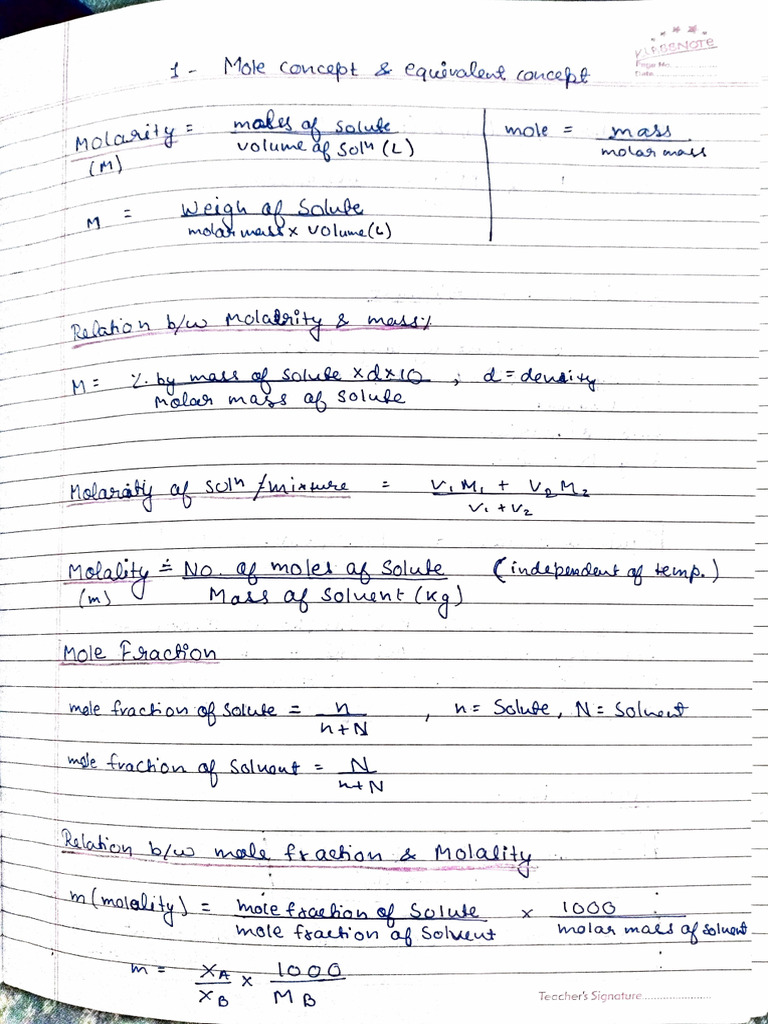 CLASSNOTE
Page No.
Date
1 - Mole concept & equivalent concept
Molarity = moles of solute / volume of solⁿ (L)
(M)
mole = mass / molar mass
M = Weigh of Solute / molar mass x volume (L)
Relation b/w Molarity & mass%
M = % by mass of solute x d x 10 / Molar mass of solute ; d = density
Molarity of solⁿ / mixture = V₁M₁ + V₂M₂ / V₁ + V₂
Molality = No. of moles of Solute / Mass of Solvent (kg) (independent of temp.)
(m)
Mole Fraction
mole fraction of solute = n / n+N , n = Solute, N = Solvent
mole fraction of Solvent = N / n+N
Relation b/w mole fraction & Molality
m (molality) = mole fraction of Solute / mole fraction of Solvent x 1000 / molar mass of solvent
m = X_A / X_B x 1000 / M_B
Teacher's Signature